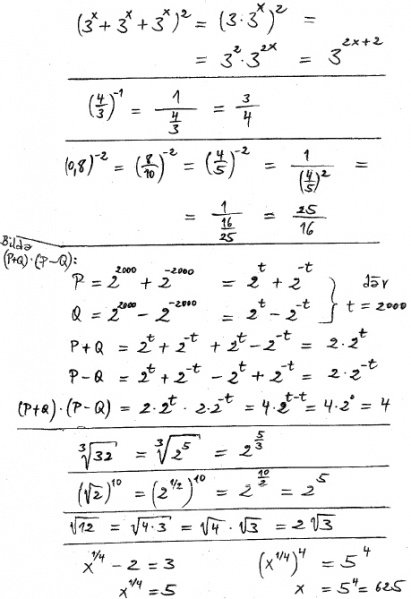 (3^x + 3^x + 3^x)^2 = (3·3^x)^2 =
= 3^2·3^{2x} = 3^{2x+2}
(4/3)^{-1} = 1/(4/3) = 3/4
(0,8)^{-2} = (8/10)^{-2} = (4/5)^{-2} = 1/(4/5)^2 =
= 1/(16/25) = 25/16
Bilda
(P+Q)·(P-Q):
P = 2^{2000} + 2^{-2000} = 2^t + 2^{-t} } där
Q = 2^{2000} - 2^{-2000} = 2^t - 2^{-t} } t = 2000
P+Q = 2^t + 2^{-t} + 2^t - 2^{-t} = 2·2^t
P-Q = 2^t + 2^{-t} - 2^t + 2^{-t} = 2·2^{-t}
(P+Q)·(P-Q) = 2·2^t·2·2^{-t} = 4·2^{t-t} = 4·2^0 = 4
∛32 = ∛(2^5) = 2^{5/3}
(√2)^{10} = (2^{1/2})^{10} = 2^{10/2} = 2^5
√12 = √(4·3) = √4·√3 = 2√3
x^{1/4} - 2 = 3 (x^{1/4})^4 = 5^4
x^{1/4} = 5 x = 5^4 = 625